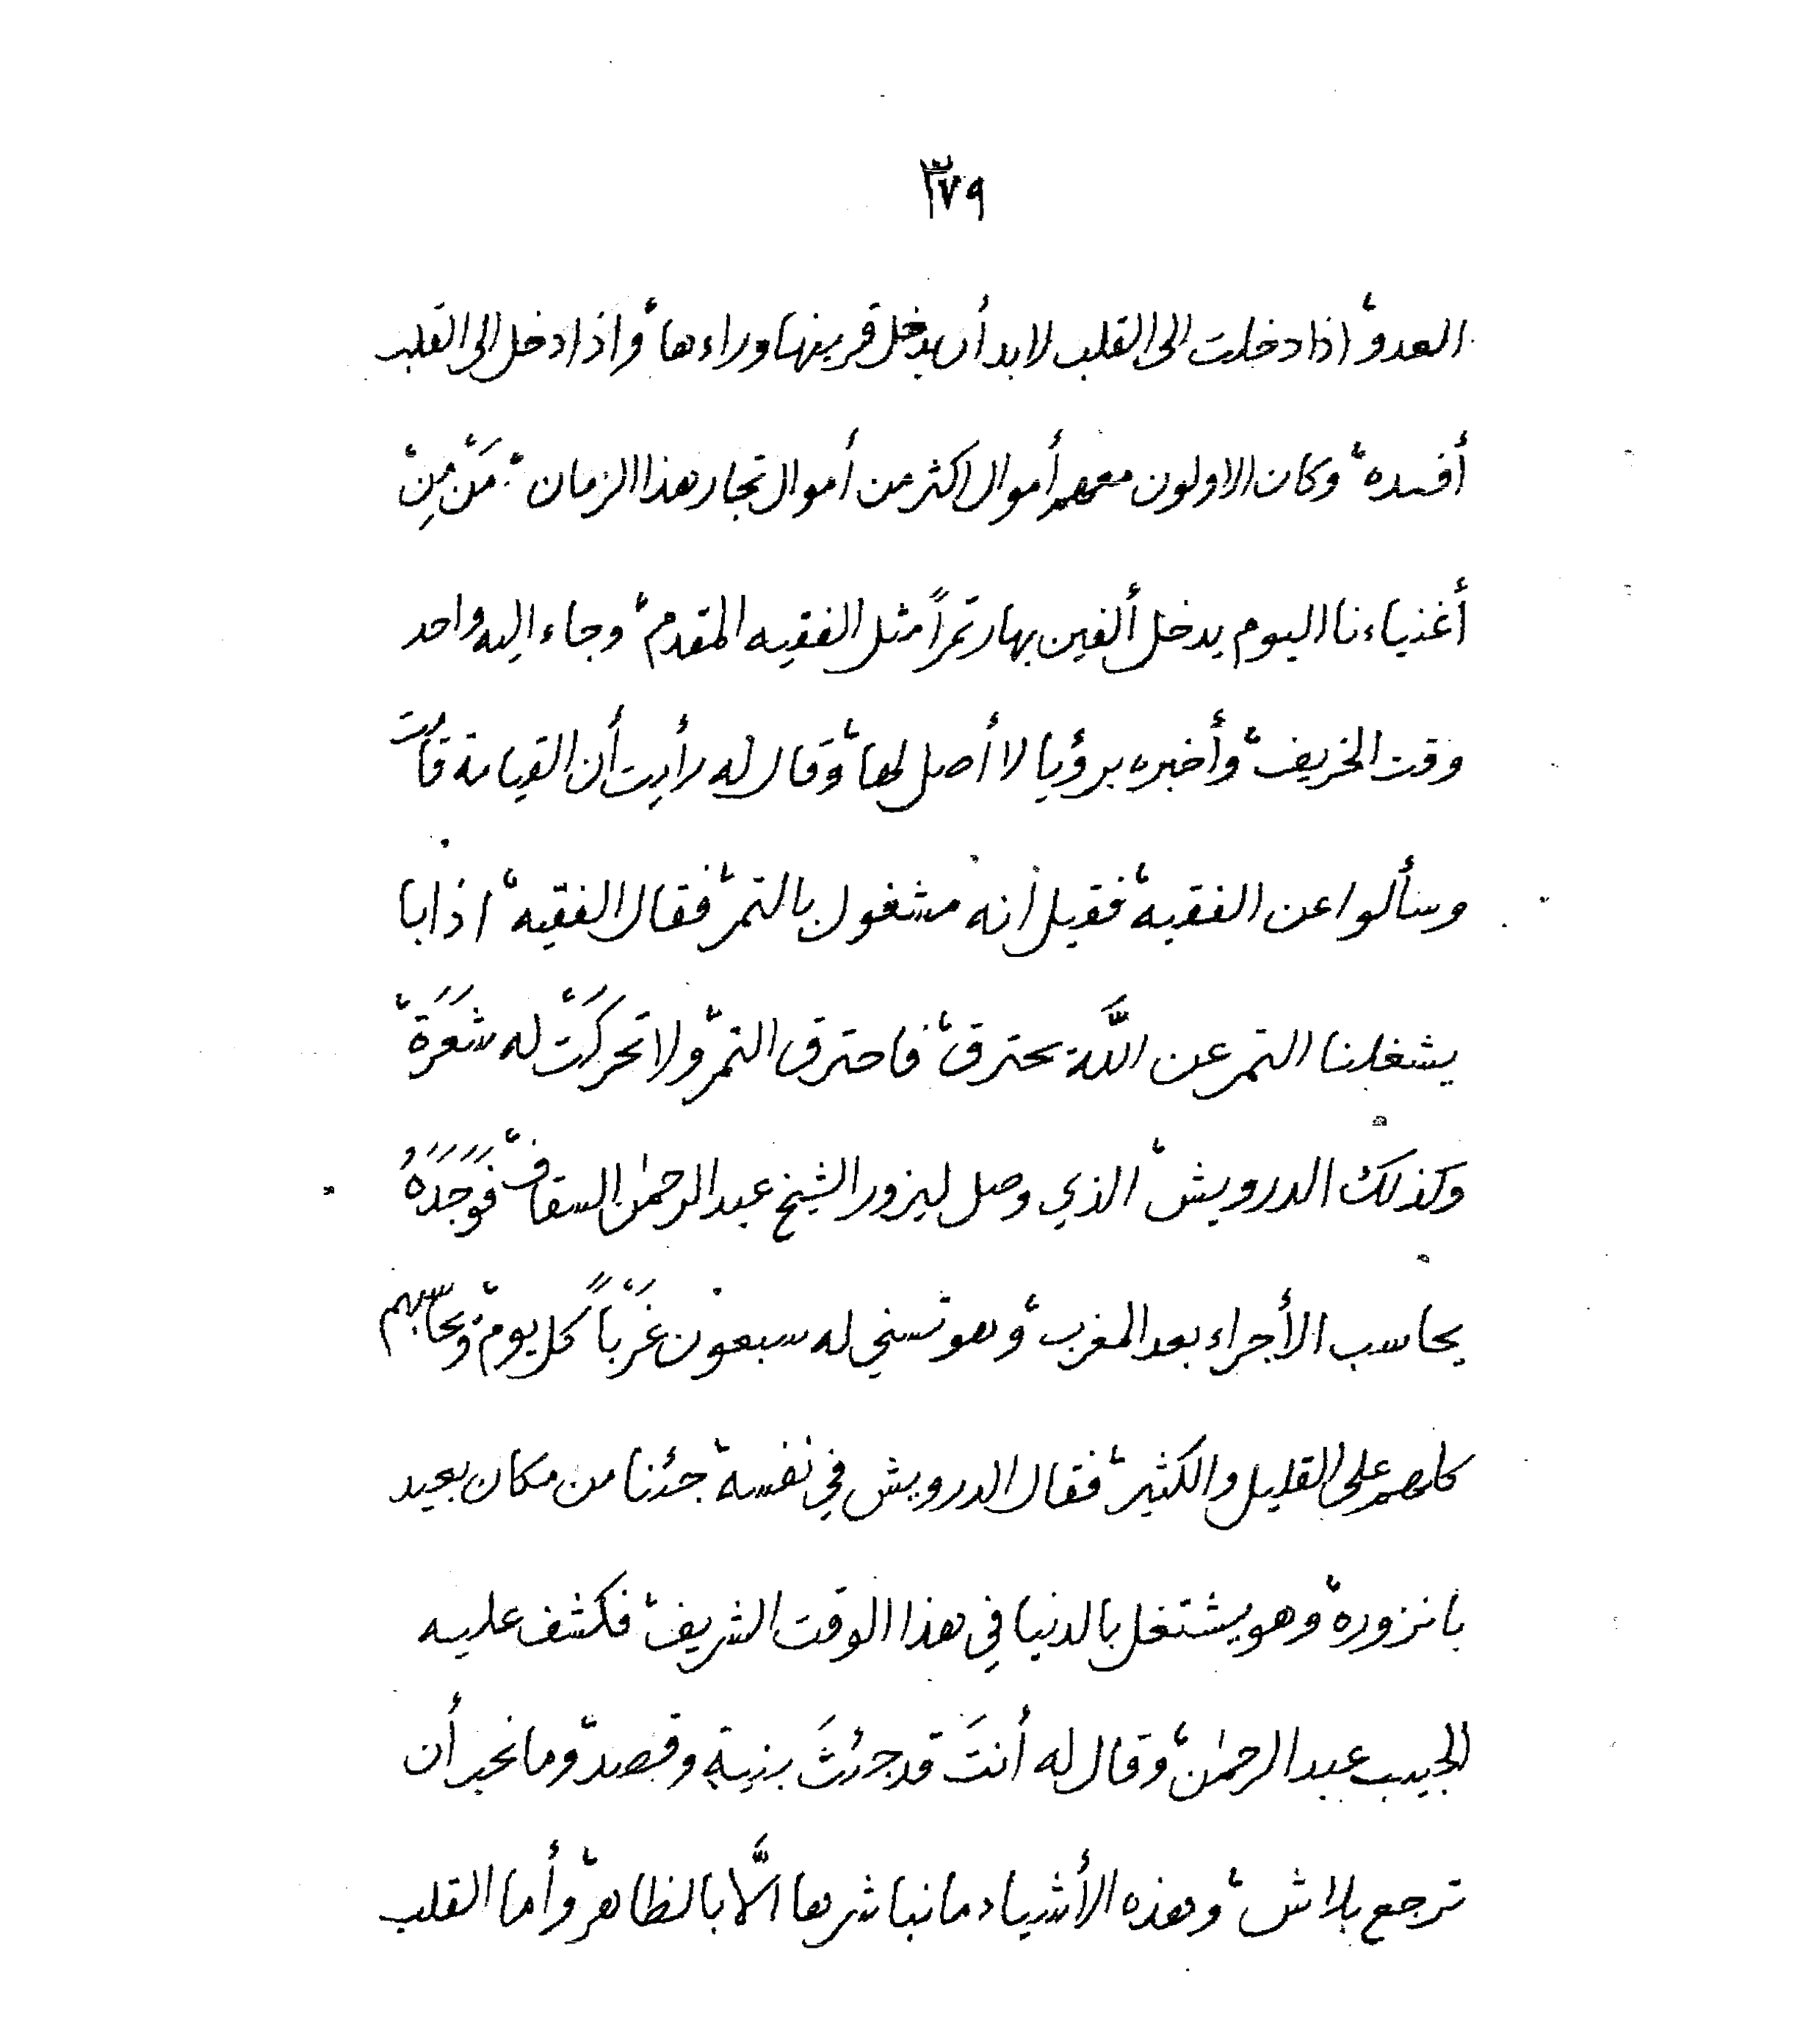 ٣٧٩
العدوّ، اذا دخلت الى القلب لابد أن يدخل قرينها وراءها، واذا دخل الى القلب
أفسده، وكان الاولون معهم أموال اكثر من أموال تجار هذا الزمان، مَنْ مِنْ
أغنياءنا اليوم يدخل ألفين بهار تمراً مثل الفقيه المقدم، وجاء اليه واحد
وقت الخريف، وأخبره برؤيا لا أصل لها، وقال له رأيت أن القيامة قامت
وسألوا عن الفقيه، فقيل أنه مشغول بالتمر، فقال الفقيه، اذا با
يشغلنا التمر عن اللَّه يحترق، فاحترق التمر، ولا تحركَتْ له شَعَرَة،
وكذلك الدرويش، الذي وصل ليزور الشيخ عبدالرحمٰن السقاف، فَوَجَدَهُ
يحاسب الأجراء بعد المغرب، وهو تسني له سبعون غَرْباً كل يوم، ويحاسبهم
كلهم على القليل والكثير، فقال الدرويش في نفسه، جئنا من مكان بعيد
با نزوره، وهو يشتغل بالدنيا في هذا الوقت الشريف، فكشف عليه
الحبيب عبدالرحمٰن، وقال له أنتَ قد جئتَ بنيةٍ وقصد، وما نحير أن
ترجع بلاش، وهذه الأشياء ما نباشرها الَّا بالظاهر، وأما القلب